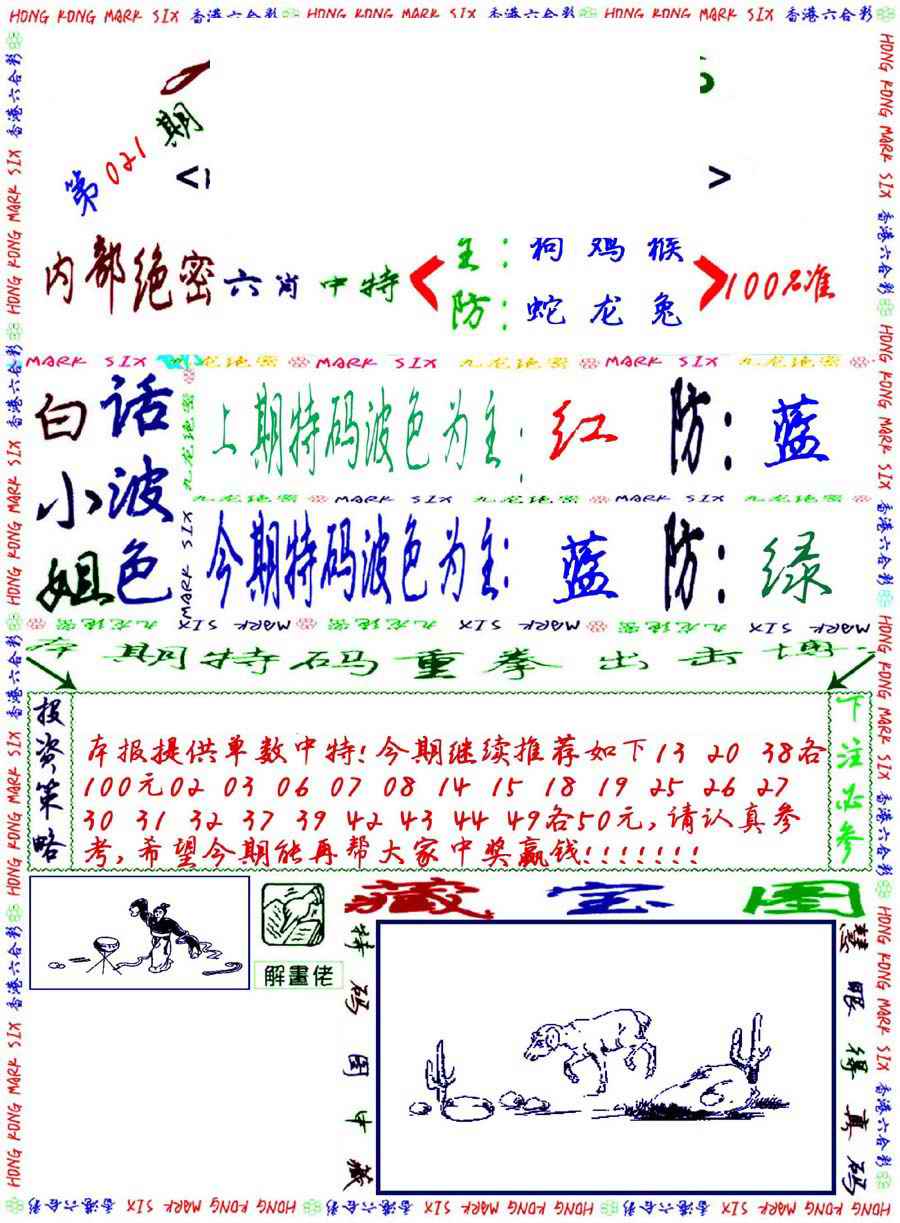 HONG KONG MARK SIX 香港六合彩 HONG KONG MARK SIX 香港六合彩 HONG KONG MARK SIX 香港六合彩
第021期
< >
内部绝密六肖中特
主：狗 鸡 猴
防：蛇 龙 兔
100%准
MARK SIX 九龙绝密 MARK SIX 九龙绝密 MARK SIX 九龙绝密
白话
小波
姐色
上期特码波色为主：红 防：蓝
九龙绝密 MARK SIX 九龙绝密 MARK SIX 九龙绝密
今期特码波色为主：蓝 防：绿
九龙绝密 MARK SIX 九龙绝密 MARK SIX 九龙绝密 MARK SIX
本期特码重拳出击
投资策略
本报提供单数中特!今期继续推荐如下13 20 38各
100元02 03 06 07 08 14 15 18 19 25 26 27
30 31 32 37 39 42 43 44 49各50元,请认真参
考,希望今期能再帮大家中奖赢钱!!!!!!!
下注必参
解畫佬
藏宝图
特码图中藏
慧眼得真码
HONG KONG MARK SIX 香港六合彩 HONG KONG MARK SIX 香港六合彩 HONG KONG MARK SIX 香港六合彩